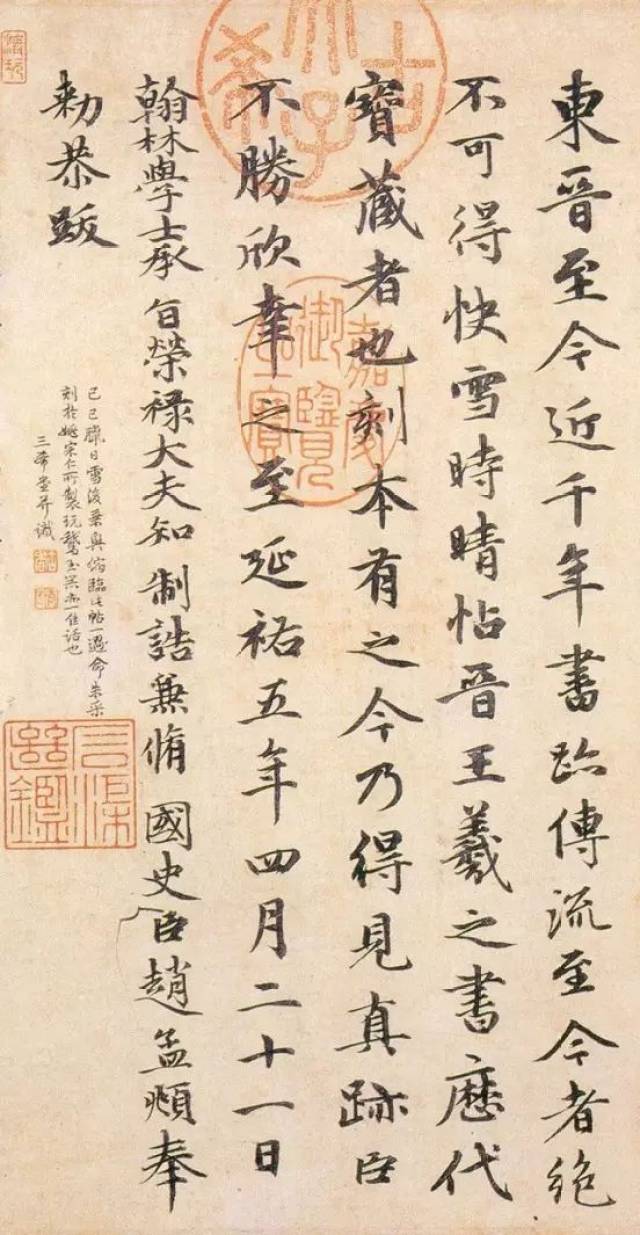 東晉至今近千年書跡傳流至今者絶
不可得快雪時晴帖晉王羲之書歷代
寶藏者也刻本有之今乃得見真跡臣
不勝欣幸之至延祐五年四月二十一日
翰林學士承旨榮禄大夫知制誥兼脩國史臣趙孟頫奉
勑恭跋
己巳臘日雪後乘輿偶臨此帖一過命朱采
刻於姚宗仁所製玩鵞玉器亦一佳話也
三希堂并識
古希天子
嘉慶御覽之寶